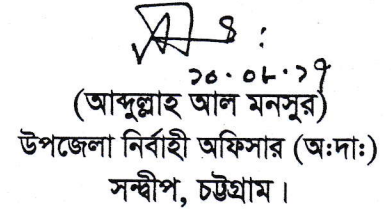 ২০.০৮.২৭
(আব্দুল্লাহ আল মনসুর)
উপজেলা নির্বাহী অফিসার (অ:দা:)
সন্দ্বীপ, চট্টগ্রাম।